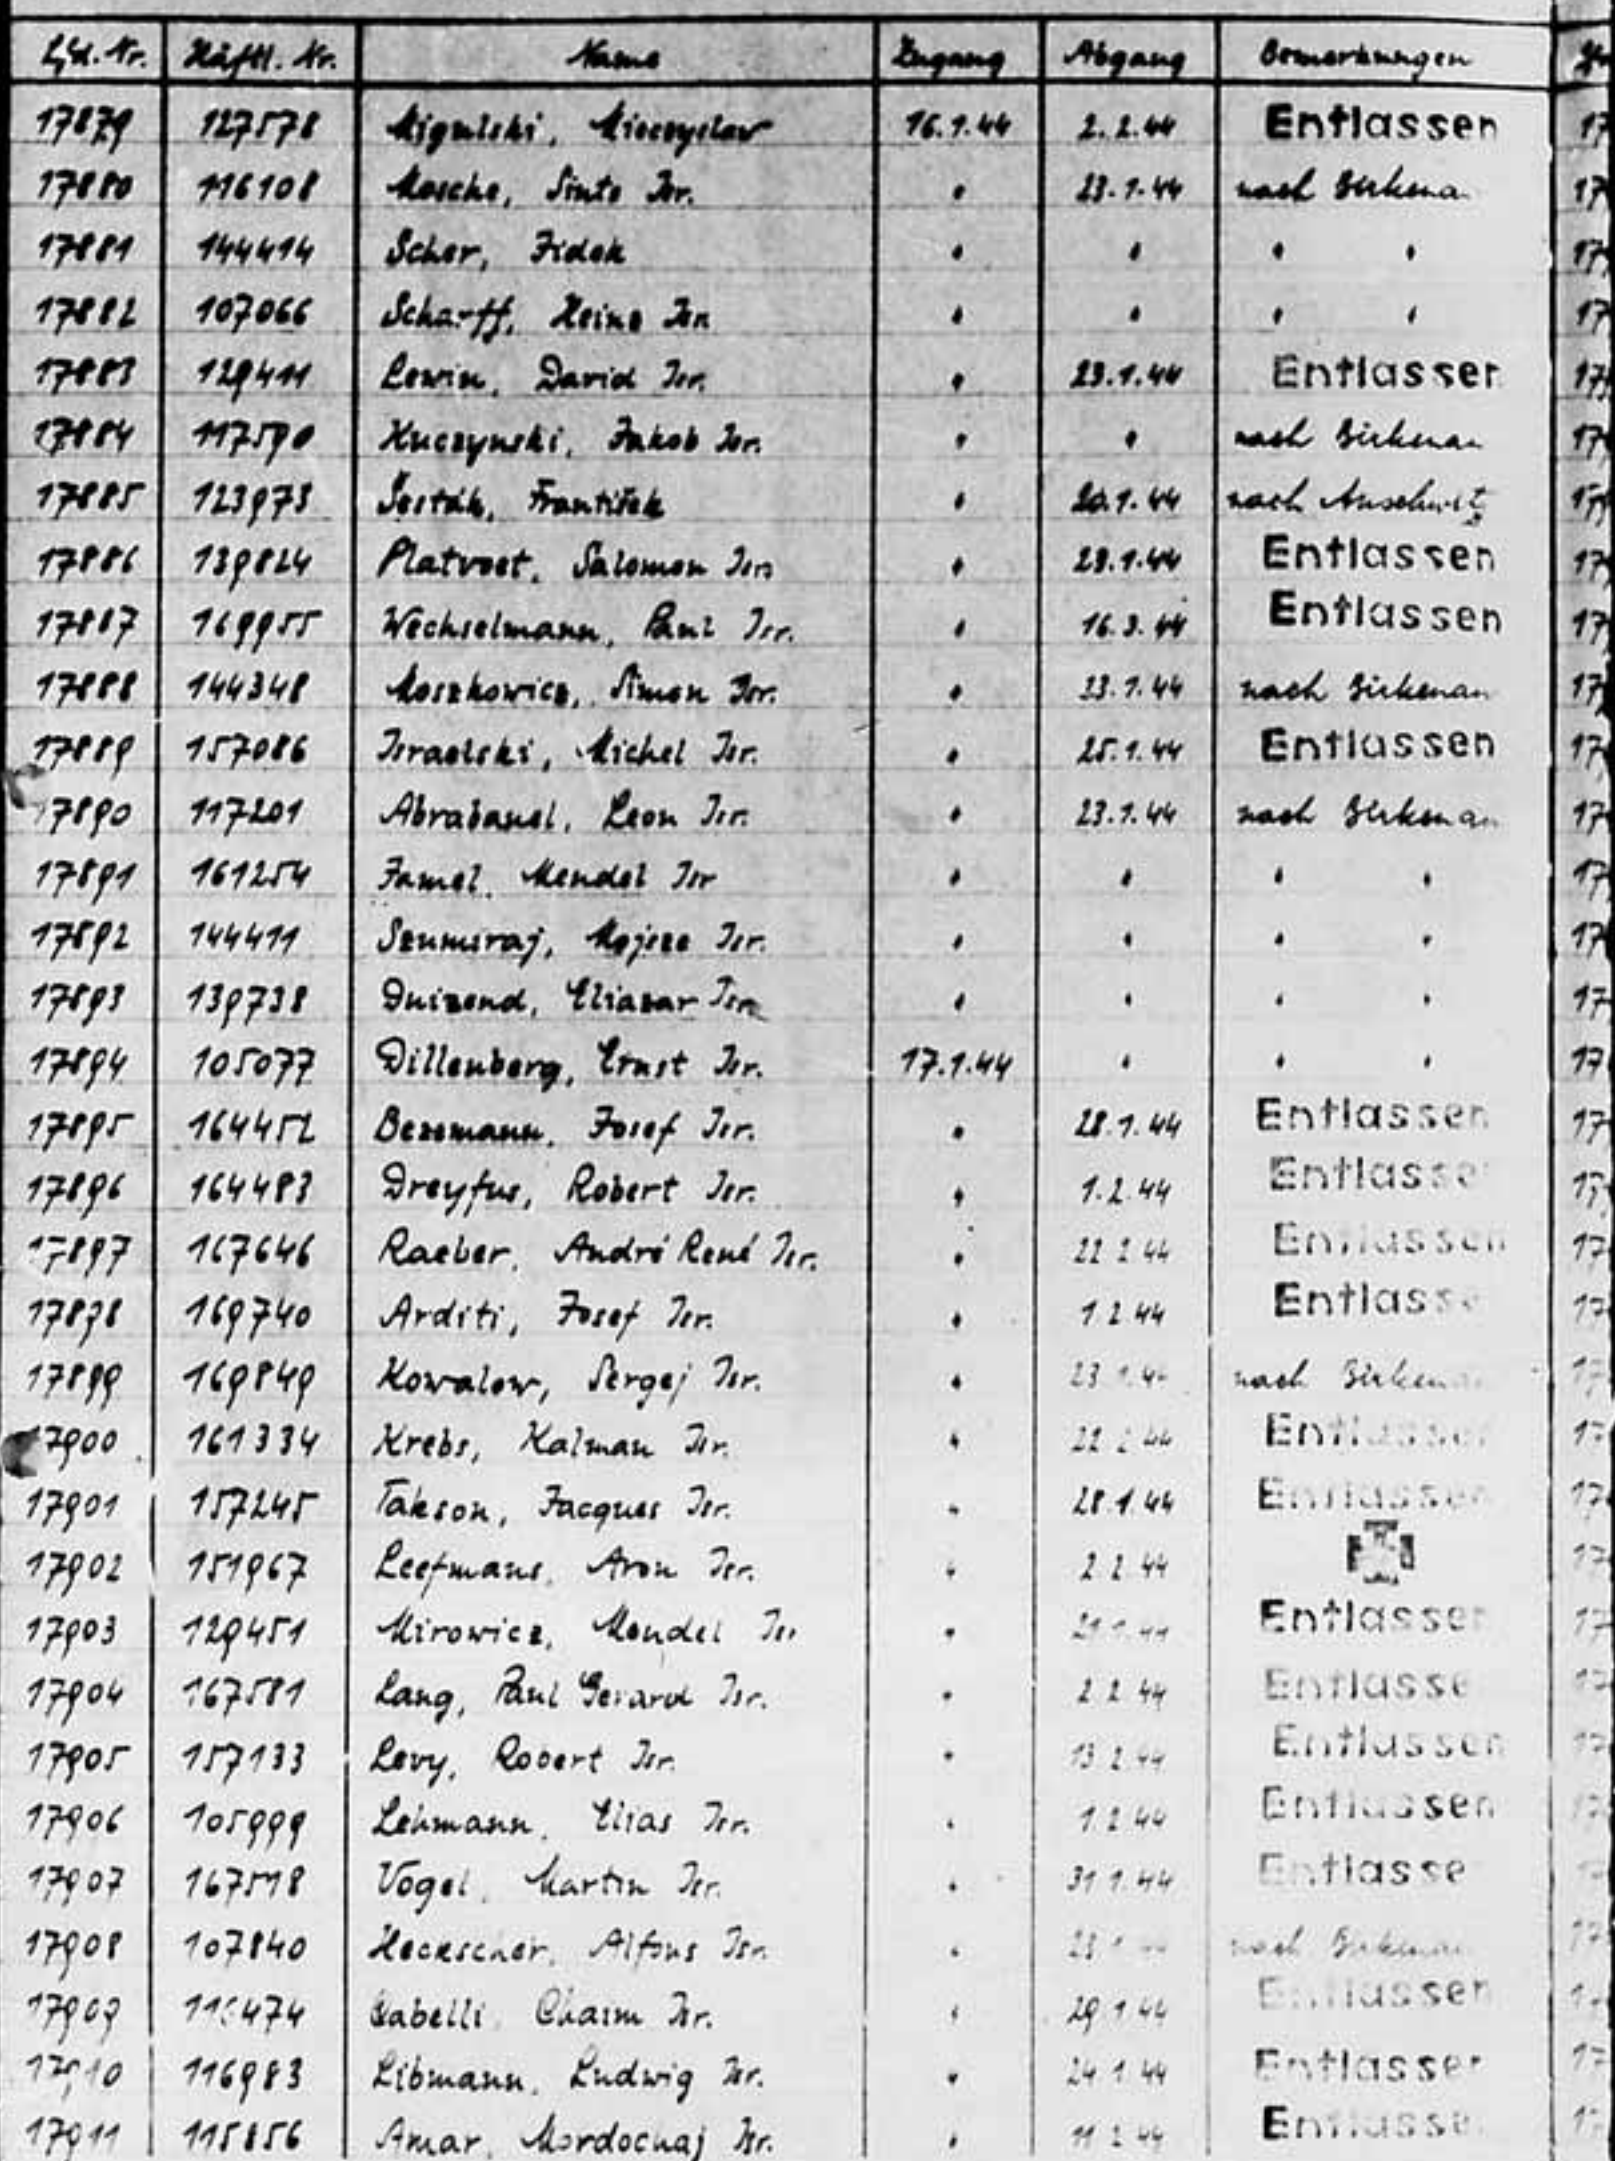 Lfd. Nr. Häftl. Nr. Name Zugang Abgang Bemerkungen
17879 127578 Migulski, Mieczyslaw 16.1.44 2.2.44 Entlassen
17880 116108 Mosche, Sinto Isr. " 23.1.44 nach Birkenau
17881 144414 Scher, Zidek " " " "
17882 107066 Scharff, Heinz Isr. " " " "
17883 129411 Lewin, David Isr. " 23.1.44 Entlassen
17884 117590 Kuczynski, Jakob Isr. " " nach Birkenau
17885 123973 Šesták, František " 20.1.44 nach Auschwitz
17886 139824 Platvoet, Salomon Isr. " 29.1.44 Entlassen
17887 169955 Wechselmann, Paul Isr. " 16.3.44 Entlassen
17888 144348 Moszkowicz, Simon Isr. " 23.1.44 nach Birkenau
17889 157086 Israelski, Michel Isr. " 25.1.44 Entlassen
17890 117201 Abrabanel, Leon Isr. " 23.1.44 nach Birkenau
17891 161254 Jamel, Mendel Isr " " " "
17892 144411 Szumiraj, Mojsze Isr. " " " "
17893 139738 Duizend, Eliazar Isr. " " " "
17894 105077 Dillenberg, Ernst Isr. 17.1.44 " " "
17895 164452 Bessmann, Josef Isr. " 28.1.44 Entlassen
17896 164483 Dreyfus, Robert Isr. " 1.2.44 Entlassen
17897 167646 Raeber, André René Isr. " 22 2 44 Entlassen
17898 169740 Arditi, Josef Isr. " 1 2 44 Entlassen
17899 169849 Kowalow, Sergej Isr. " 23 1.44 nach Birkenau
17900 161334 Krebs, Kalman Isr. " 22 2 44 Entlassen
17901 157245 Takson, Jacques Isr. " 28.1.44 Entlassen
17902 151967 Leefmans, Aron Isr. " 2 2 44
17903 129451 Mirowicz, Mendel Isr " 21 1.44 Entlassen
17904 167581 Lang, Paul Gerard Isr. " 2 2 44 Entlassen
17905 157133 Levy, Robert Isr. " 13 2 44 Entlassen
17906 105999 Lehmann, Elias Isr. " 1 2 44 Entlassen
17907 167518 Vogel, Martin Isr. " 31 1.44 Entlassen
17908 107840 Heckscher, Alfons Isr. " nach Birkenau
17909 Gabelli, Chaim Isr. " 29 1 44 Entlassen
17910 116983 Libmann, Ludwig Isr. " 24 1 44 Entlassen
17911 115856 Amar, Mordochaj Isr. " 11 2 44 Entlassen